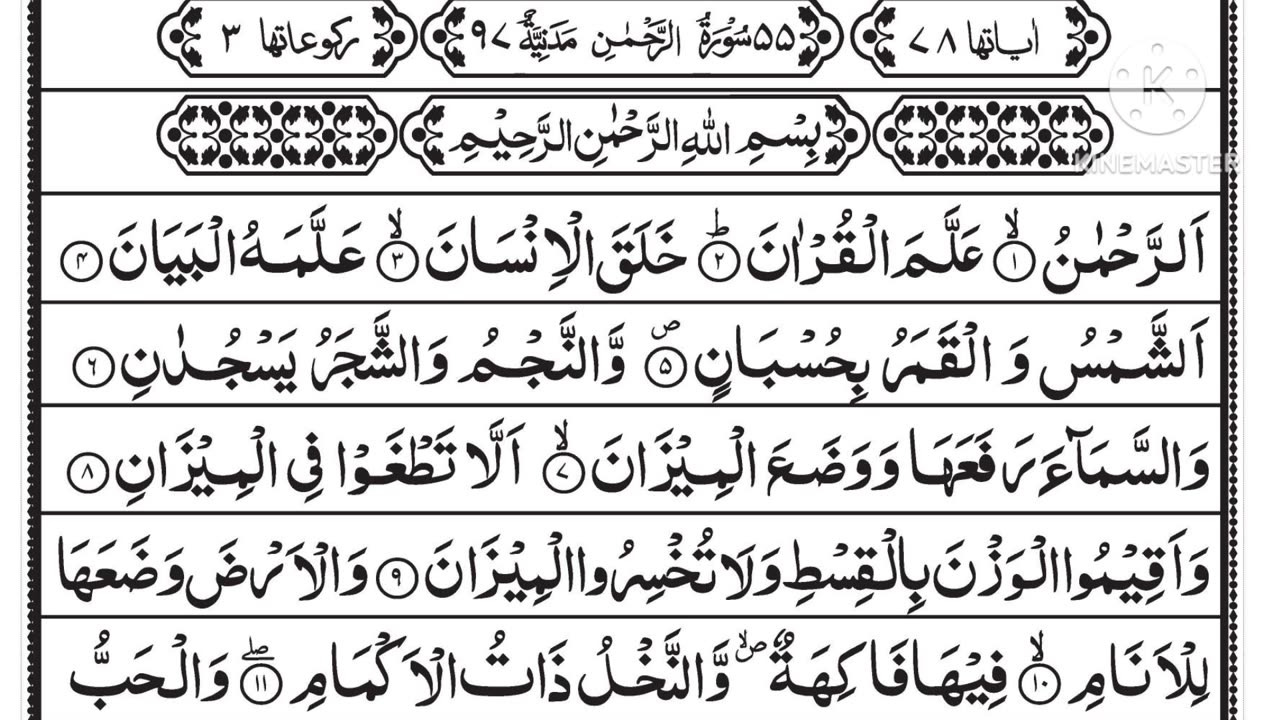 اٰیاتها ٧٨ ٥٥ سُوْرَةُ الرَّحْمٰنِ مَدَنِیَّةٌ ٩٧ رکوعاتها ٣
بِسْمِ اللهِ الرَّحْمٰنِ الرَّحِیْمِ
اَلرَّحْمٰنُ ۙ﴿۱﴾ عَلَّمَ الْقُرْاٰنَ ؕ﴿۲﴾ خَلَقَ الْاِنْسَانَ ۙ﴿۳﴾ عَلَّمَهُ الْبَیَانَ ﴿۴﴾
اَلشَّمْسُ وَ الْقَمَرُ بِحُسْبَانٍ ۪﴿۵﴾ وَّالنَّجْمُ وَالشَّجَرُ یَسْجُدٰنِ ﴿۶﴾
وَالسَّمَآءَ رَفَعَهَا وَوَضَعَ الْمِیْزَانَ ۙ﴿۷﴾ اَلَّا تَطْغَوْا فِی الْمِیْزَانِ ﴿۸﴾
وَاَقِیْمُوا الْوَزْنَ بِالْقِسْطِ وَلَا تُخْسِرُوا الْمِیْزَانَ ﴿۹﴾ وَالْاَرْضَ وَضَعَهَا
لِلْاَنَامِ ۙ﴿۱۰﴾ فِیْهَا فَاكِهَةٌ ۪ۙ وَّالنَّخْلُ ذَاتُ الْاَكْمَامِ ۖ﴿۱۱﴾ وَالْحَبُّ
KINEMASTER